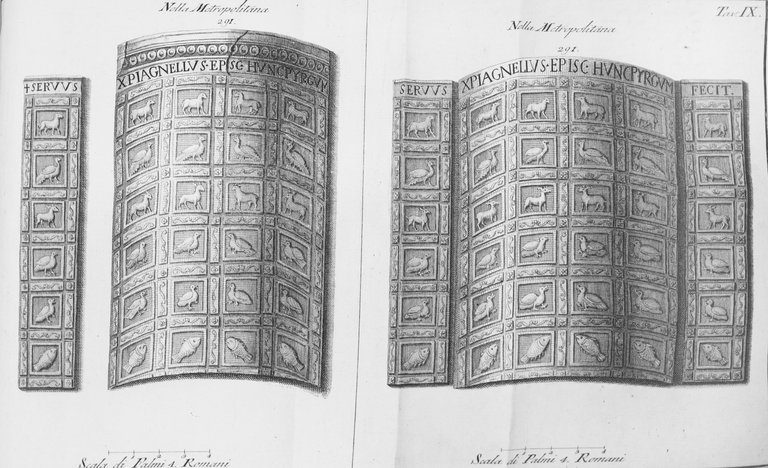 Nella Metropolitana
291.
+SERVVS
XPIAGNELLVS·EPISC·HVNCPYRGVM
Scala di Palmi 4. Romani
Tav IX.
Nella Metropolitana
291.
SERVVS
XPIAGNELLVS·EPISC·HVNCPYRGVM
FECIT.
Scala di Palmi 4. Romani